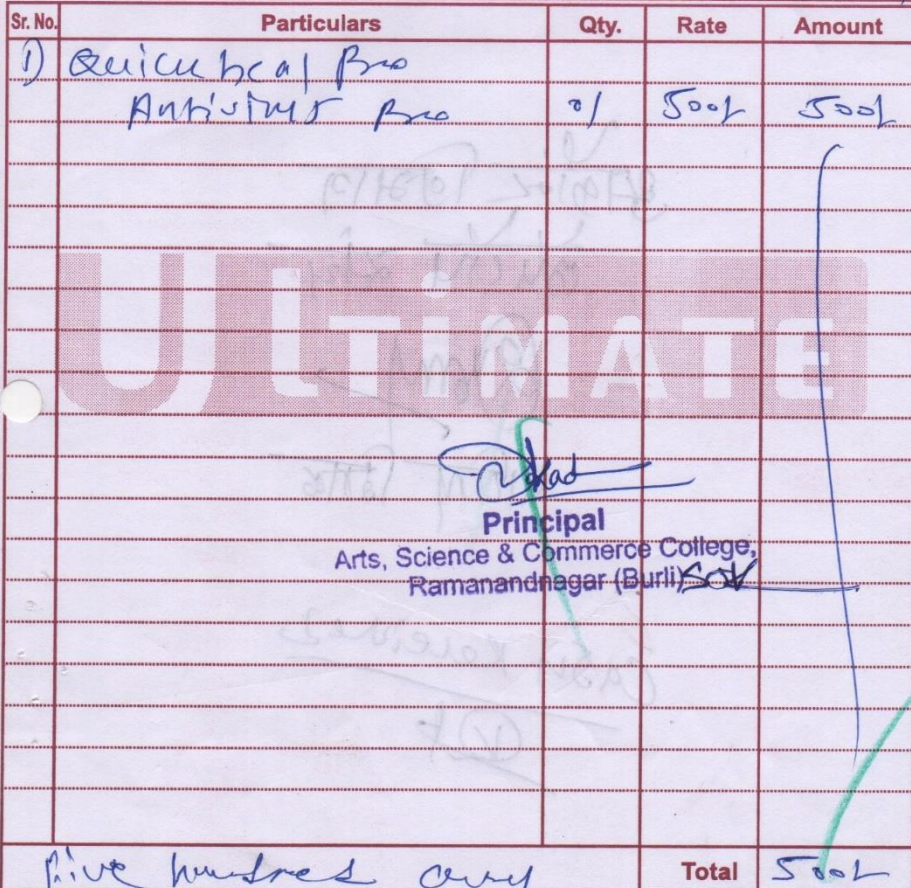 Sr. No. Particulars Qty. Rate Amount
1) Quick heal Pro
Antivirus Pro 01 500/- 500/-
ULTiMATE
Principal
Arts, Science & Commerce College,
Ramanandnagar (Burli)
five hundred only Total 500/-